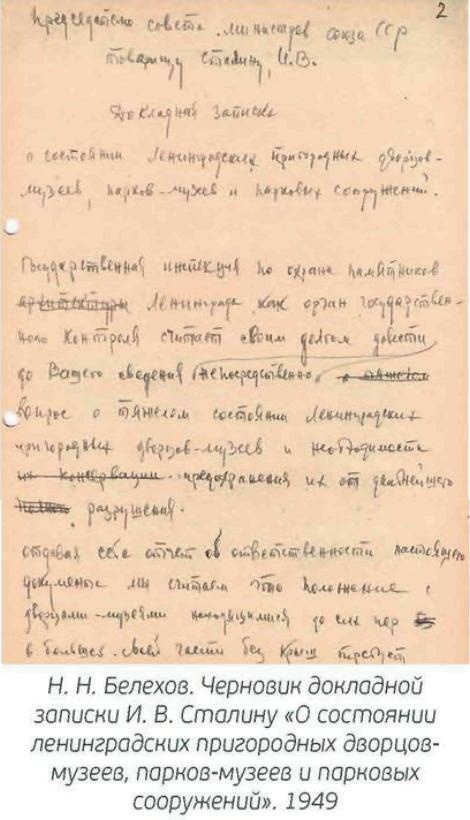 2
Председателю совета министров союза ССР
товарищу Сталину, И.В.
Докладная записка
о состоянии Ленинградских пригородных дворцов-
музеев, парков-музеев и парковых сооружений.
Государственная инспекция по охране памятников
архитектуры Ленинграда как орган государствен-
ного контроля считает своим долгом довести
до Вашего сведения непосредственно о тяжелом
вопрос о тяжелом состоянии Ленинградских
пригородных дворцов-музеев и необходимости
их консервации предохранения их от дальнейшего
полного разрушения.
отдавая себе отчет об ответственности настоящего
документа мы считаем что положение с
дворцами-музеями находящимися до сих пор
в большей своей части без крыш требует
Н. Н. Белехов. Черновик докладной
записки И. В. Сталину «О состоянии
ленинградских пригородных дворцов-
музеев, парков-музеев и парковых
сооружений». 1949